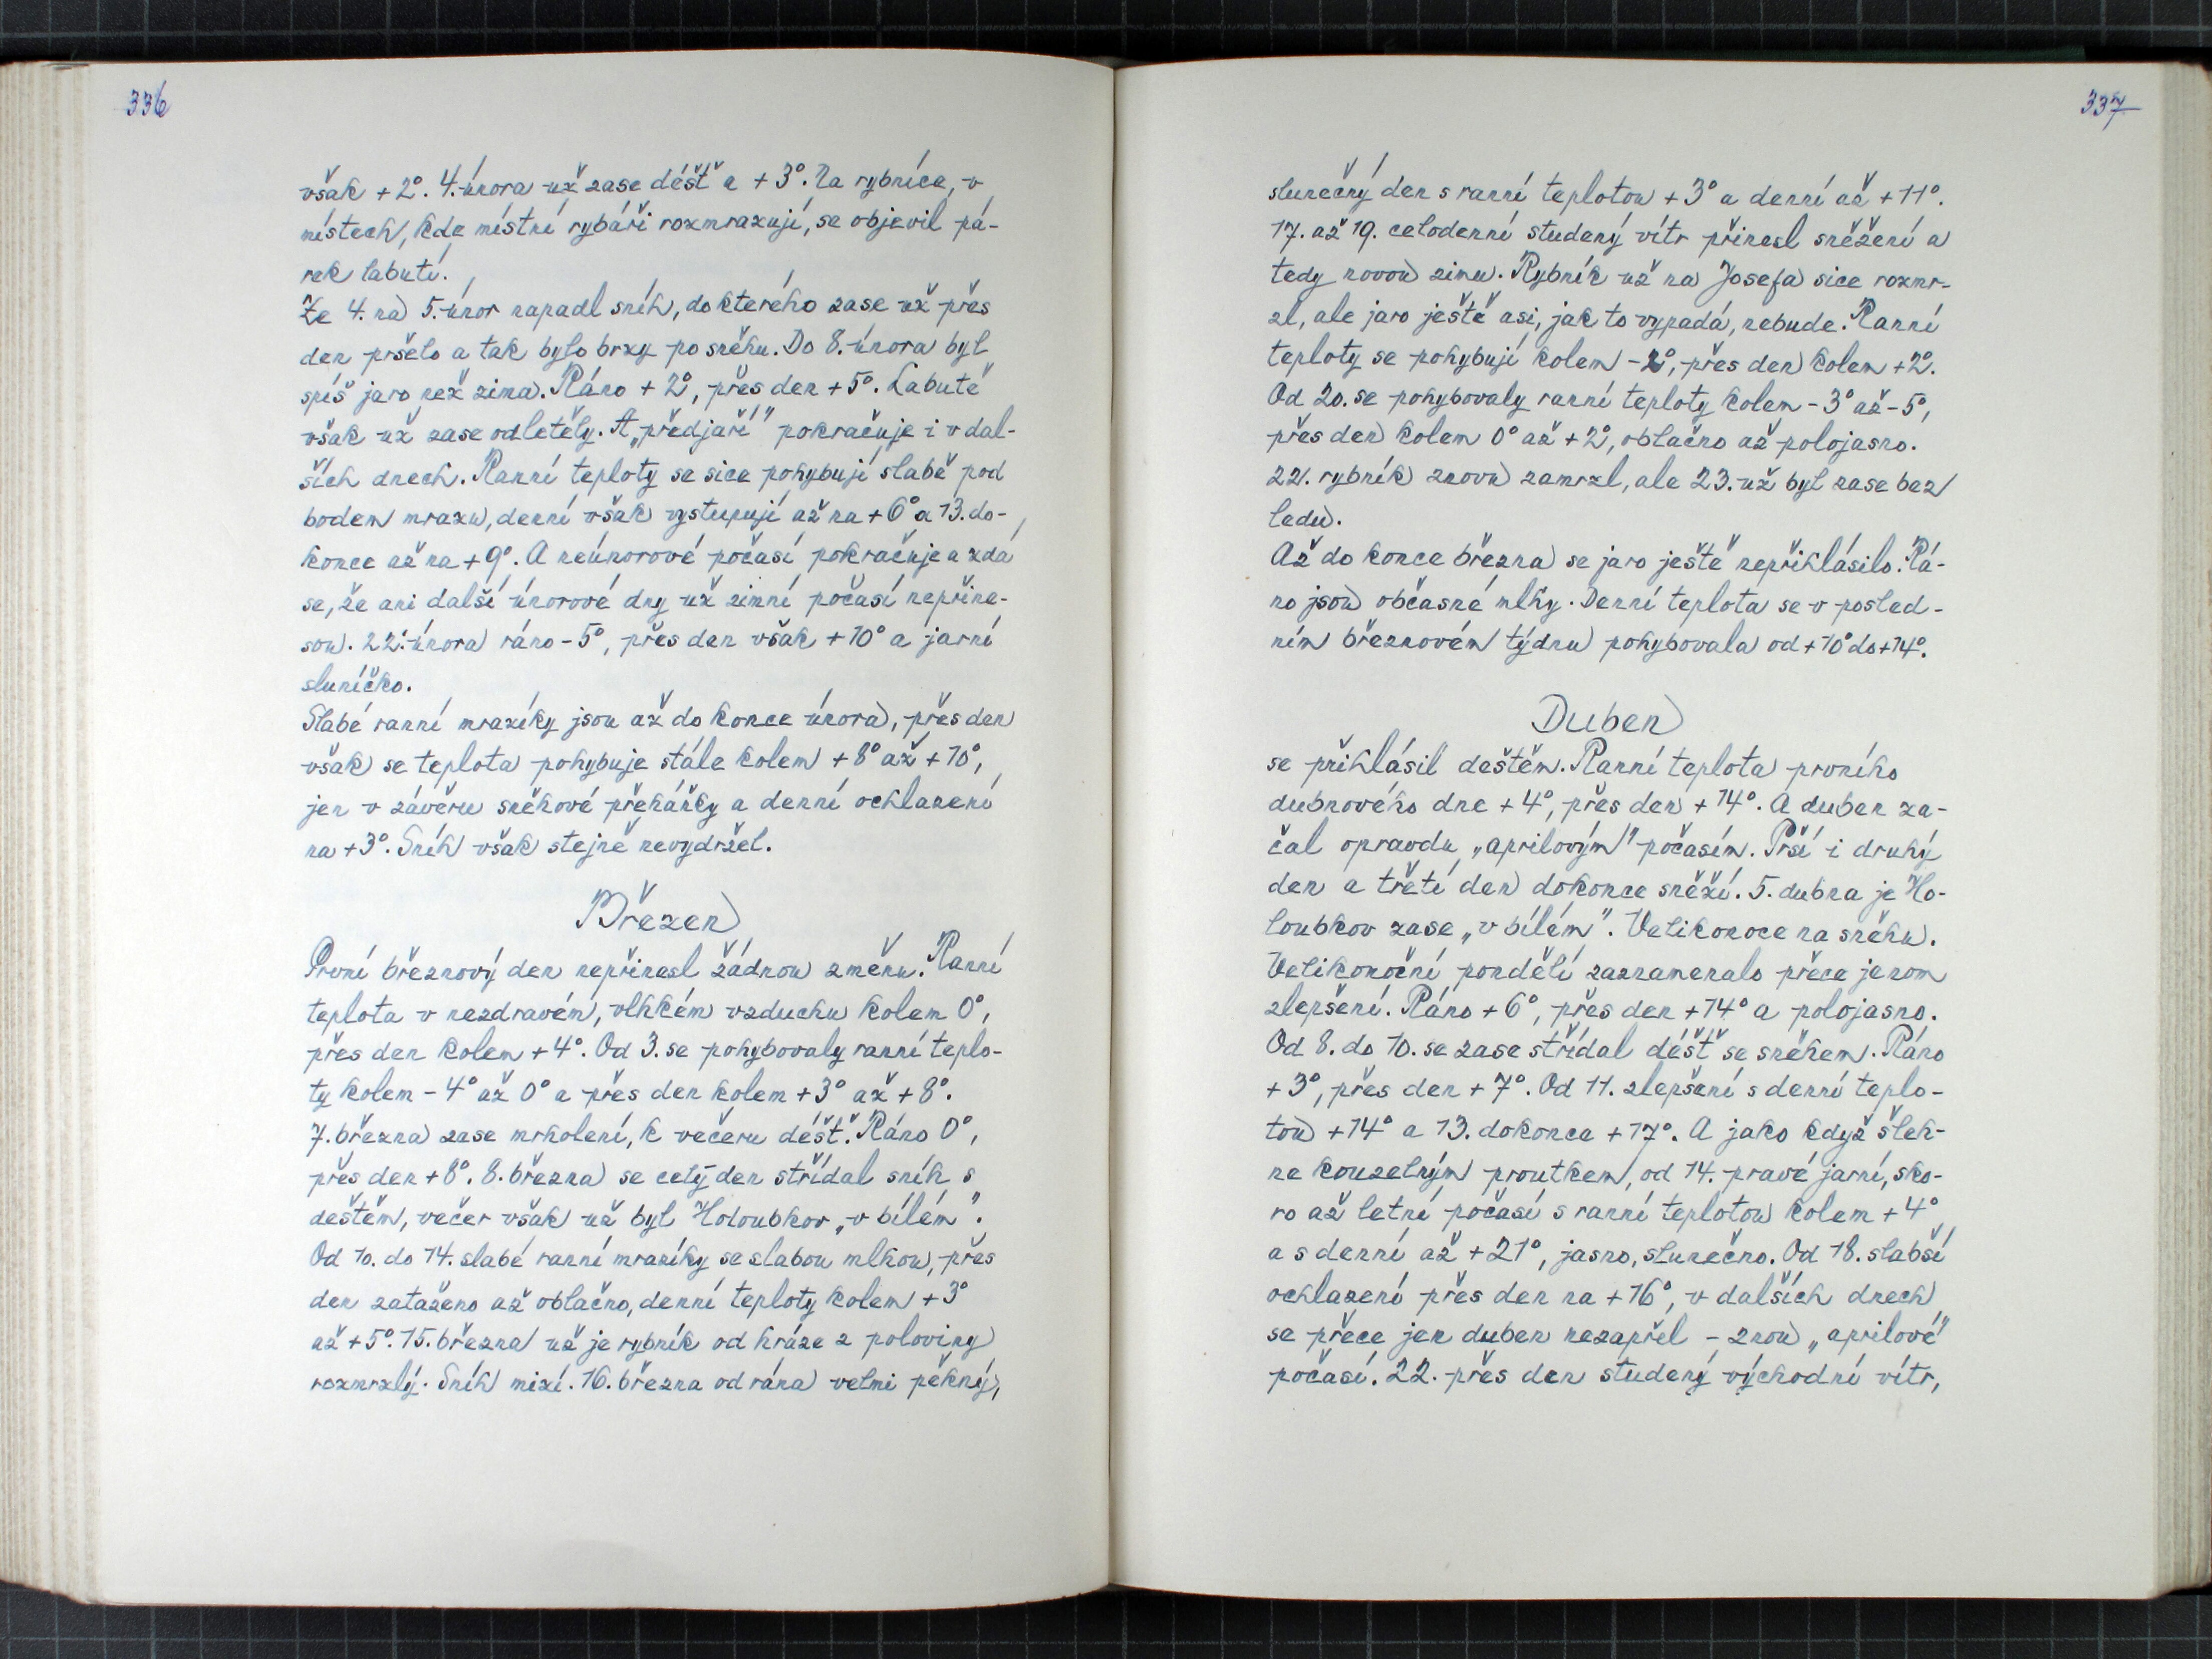 336
však +2°. 4. února už zase déšť a +3°. Na rybníce, v
místech, kde místní rybáři rozmrazují, se objevil pá-
rek labutí.
Ze 4. na 5. únor napadl sníh, do kterého zase už přes
den pršelo a tak bylo brzy po sněhu. Do 8. února byl
spíš jaro než zima. Ráno +2°, přes den +5°. Labutě
však už zase odletěly. A „předjaří" pokračuje i v dal-
ších dnech. Ranní teploty se sice pohybují slabě pod
bodem mrazu, denní však vystupují až na +6° a 13. do-
konce až na +9°. A neúnorové počasí pokračuje a zdá
se, že ani další únorové dny už zimní počasí nepřine-
sou. 22. února ráno -5°, přes den však +10° a jarní
sluníčko.
Slabé ranní mrazíky jsou až do konce února, přes den
však se teplota pohybuje stále kolem +8° až +10°,
jen v závěru sněhové přeháňky a denní ochlazení
na +3°. Sníh však stejně nevydržel.
Březen
První březnový den nepřinesl žádnou změnu. Ranní
teplota v nezdravém, vlhkém vzduchu kolem 0°,
přes den kolem +4°. Od 3. se pohybovaly ranní teplo-
ty kolem -4° až 0° a přes den kolem +3° až +8°.
7. března zase mrholení, k večeru déšť. Ráno 0°,
přes den +8°. 8. března se celý den střídal sníh s
deštěm, večer však už byl Holoubkov „v bílém".
Od 10. do 14. slabé ranní mrazíky se slabou mlhou, přes
den zataženo až oblačno, denní teploty kolem +3°
až +5°. 15. března už je rybník od hráze z poloviny
rozmrzlý. Sníh mizí. 16. března od rána velmi pěkný,
337
slunečný den s ranní teplotou +3° a denní až +11°.
17. až 19. celodenní studený vítr přinesl sněžení a
tedy novou zimu. Rybník už na Josefa sice rozmr-
zl, ale jaro ještě asi, jak to vypadá, nebude. Ranní
teploty se pohybují kolem -2°, přes den kolem +2°.
Od 20. se pohybovaly ranní teploty kolem -3° až -5°,
přes den kolem 0° až +2°, oblačno až polojasno.
22. rybník znovu zamrzl, ale 23. už byl zase bez
ledu.
Až do konce března se jaro ještě nepřihlásilo. Rá-
no jsou občasné mlhy. Denní teplota se v posled-
ním březnovém týdnu pohybovala od +10° do +14°.
Duben
se přihlásil deštěm. Ranní teplota prvního
dubnového dne +4°, přes den +14°. A duben za-
čal opravdu „aprilovým" počasím. Prší i druhý
den a třetí den dokonce sněží. 5. dubna je Ho-
loubkov zase „v bílém". Velikonoce na sněhu.
Velikonoční pondělí zaznamenalo přece jenom
zlepšení. Ráno +6°, přes den +14° a polojasno.
Od 8. do 10. se zase střídal déšť se sněhem. Ráno
+3°, přes den +7°. Od 11. zlepšení s denní teplo-
tou +14° a 13. dokonce +17°. A jako když šleh-
ne kouzelným proutkem, od 14. pravé jarní, sko-
ro až letní počasí s ranní teplotou kolem +4°
a s denní až +21°, jasno, slunečno. Od 18. slabší
ochlazení přes den na +16°, v dalších dnech
se přece jen duben nezapřel – znou „aprilové"
počasí. 22. přes den studený východní vítr,